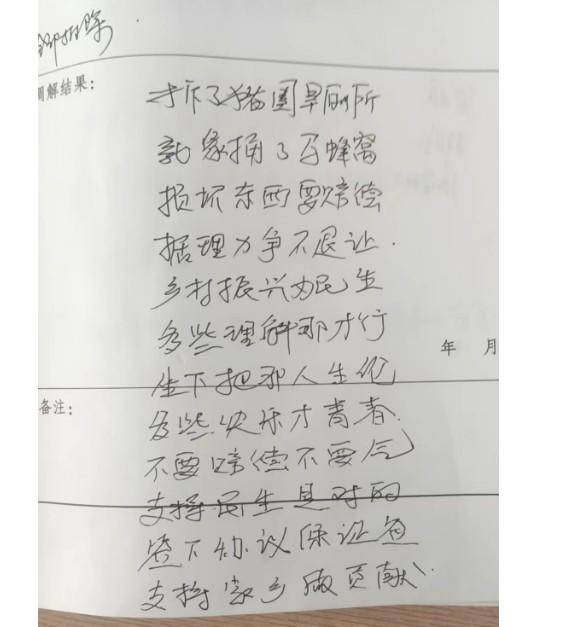 调解结果：
拆了猪圈旱厕所
就象捅了马蜂窝
损坏东西要赔偿
据理力争不退让.
乡村振兴为民生
多些理解那才行
年 月
坐下把那人生论
备注：
多些快乐才青春.
不要赔偿不要气
支持民生是对的
签下协议保证金
支持家乡做贡献.